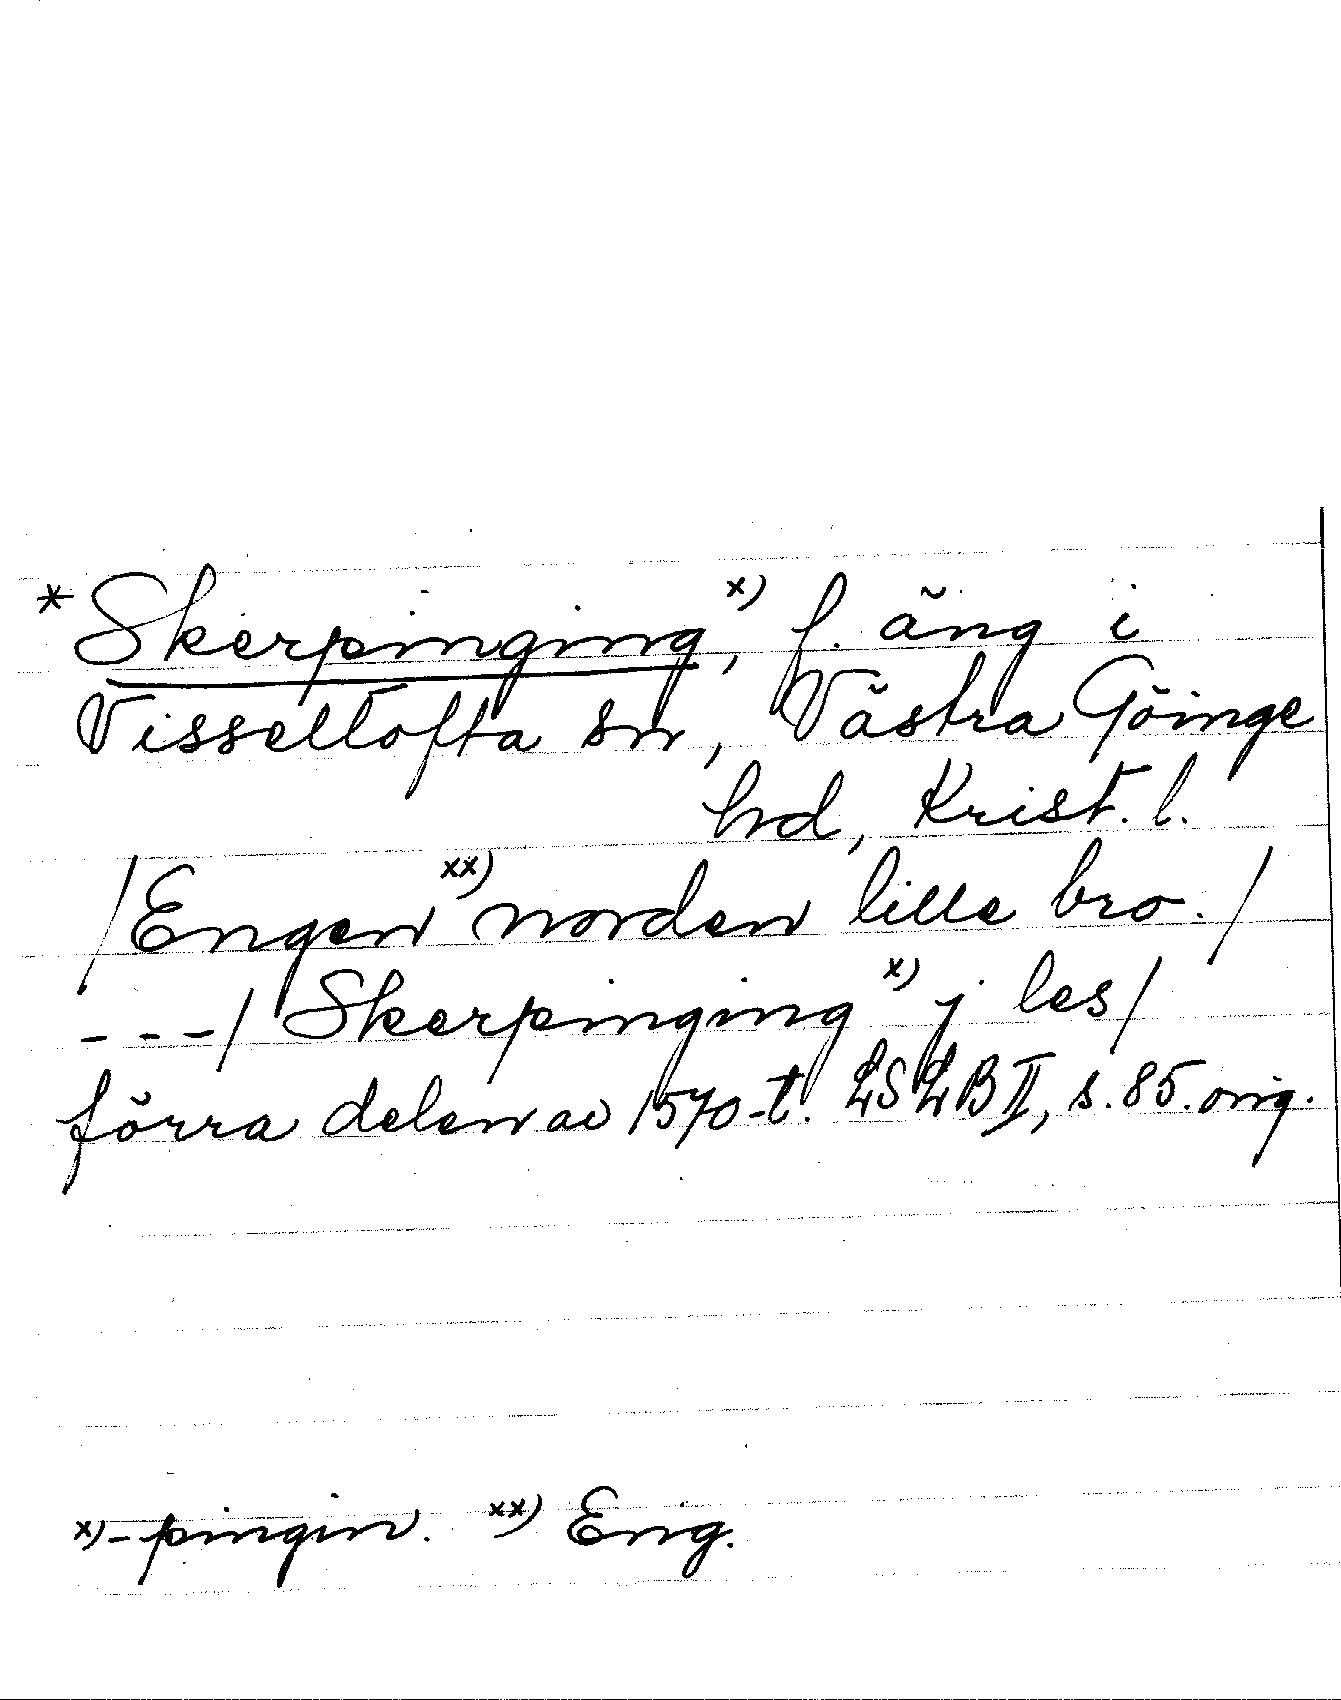 * Skerpinging, x) f. äng i
Visseltofta sn, Västra Göinge
hd, Krist. l.
/Engen xx) norden lille bro./
---/ Skerpinging x) j les/
förra delen av 1570-t. LSLB II, s. 85. orig.
x) -pingin. xx) Eng.